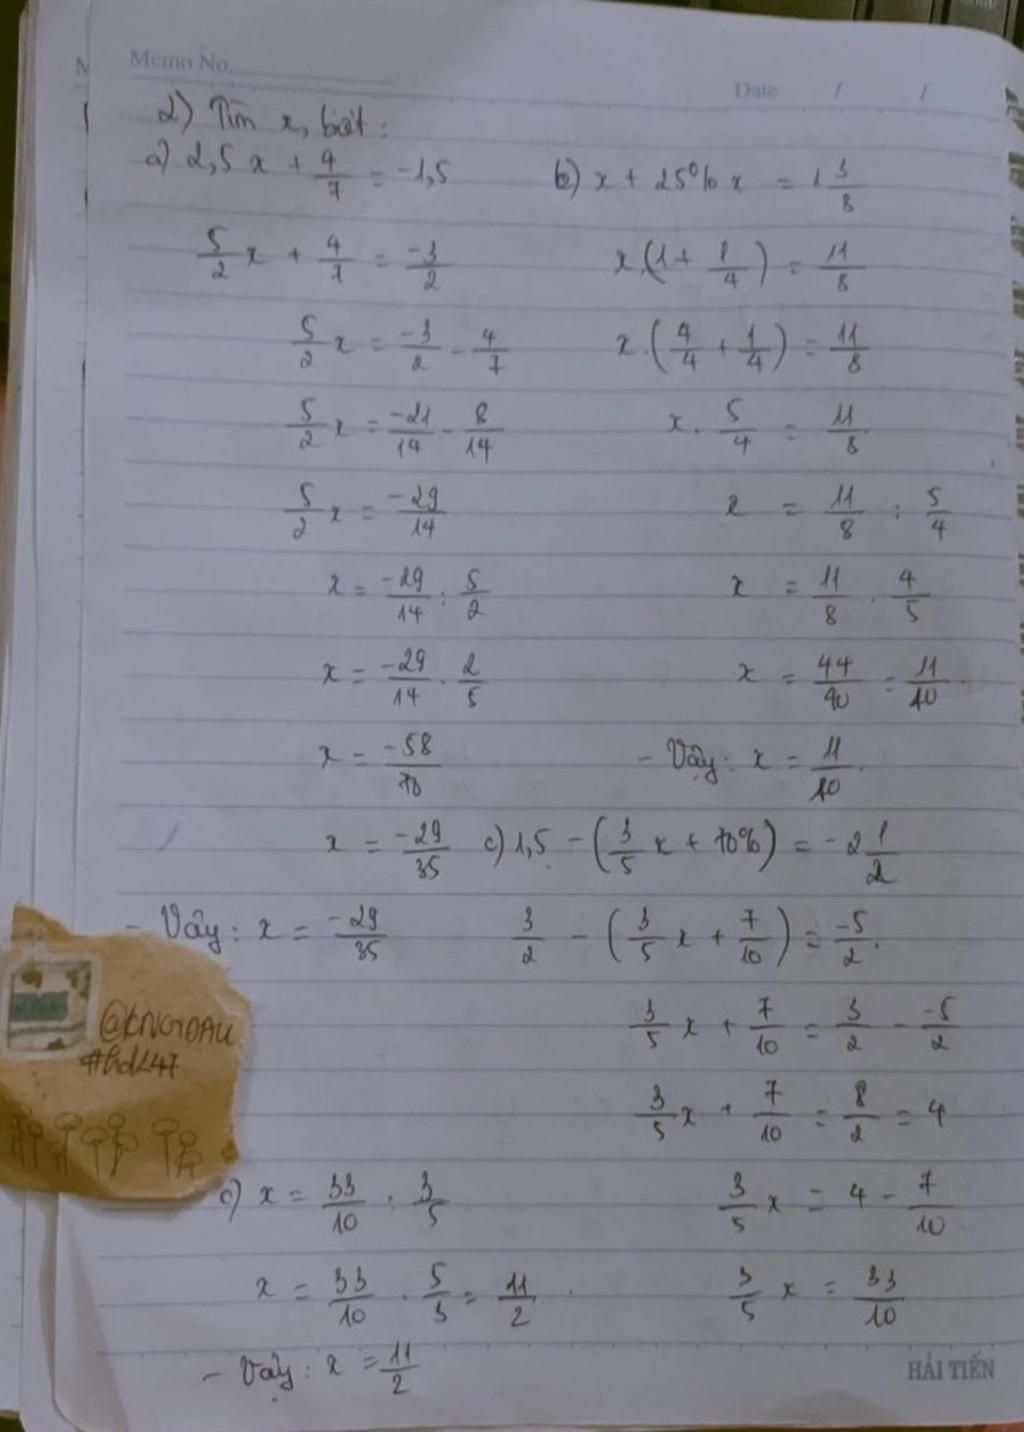 Memo No.
Date / /
2) Tìm x, biết:
a) 2,5 x + 4/7 = -1,5
5/2 x + 4/7 = -3/2
5/2 x = -3/2 - 4/7
5/2 x = -21/14 - 8/14
5/2 x = -29/14
x = -29/14 : 5/2
x = -29/14 . 2/5
x = -58/70
x = -29/35
- Vậy: x = -29/35
b) x + 25% x = 1 3/8
x.(1 + 1/4) = 11/8
x.(4/4 + 1/4) = 11/8
x . 5/4 = 11/8
x = 11/8 : 5/4
x = 11/8 . 4/5
x = 44/40 = 11/10
- Vậy: x = 11/10.
c) 1,5 - (3/5 x + 70%) = -2 1/2
3/2 - (3/5 x + 7/10) = -5/2.
3/5 x + 7/10 = 3/2 - -5/2
3/5 x + 7/10 = 8/2 = 4
3/5 x = 4 - 7/10
3/5 x = 33/10
c) x = 33/10 : 3/5
x = 33/10 . 5/3 = 11/2.
- Vậy: x = 11/2
HẢI TIẾN